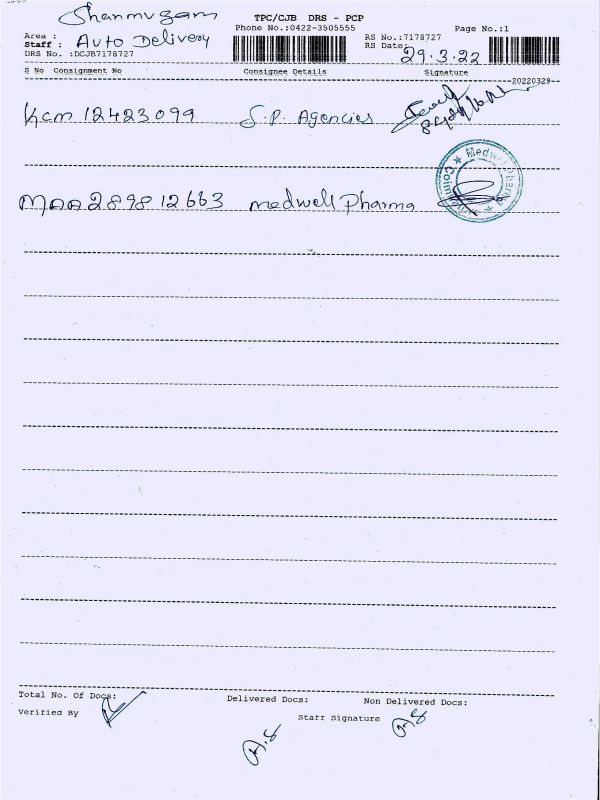 Shanmugam
TPC/CJB DRS - PCP
Phone No.:0422-3505555
Page No.:1
Area :
Staff : Auto Delivery
DRS No. :DCJB7178727
RS No.:7178727
RS Date: 29.3.22
S No Consignment No Consignee Details Signature
20220329
KCM 12423099 S.P. Agencies
MAA289812663 medwell pharma
Total No. Of Docs: Delivered Docs: Non Delivered Docs:
Verified By Staff Signature
A.S A.S